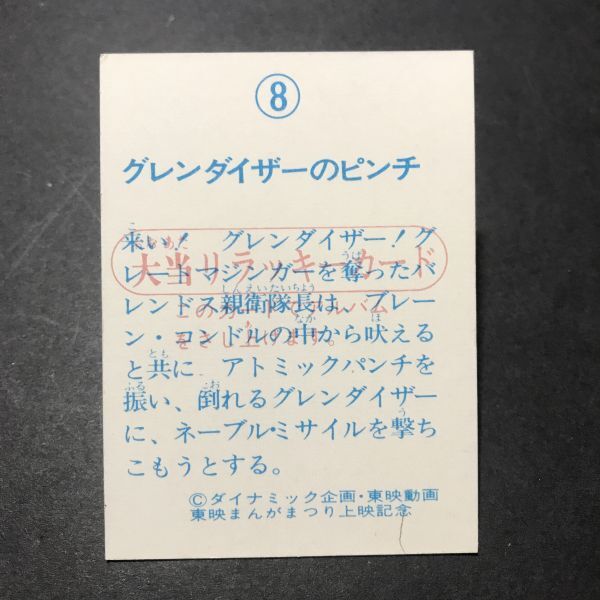 8
グレンダイザーのピンチ
来い! グレンダイザー!グ
大当りラッキーカード
レートマジンガーを奪ったバ
レンドス親衛隊長は、ブレー
ン・コンドルの中から吠える
をさし上げます。
と共に アトミックパンチを
振い、倒れるグレンダイザー
に、ネーブル・ミサイルを撃ち
こもうとする。
©ダイナミック企画・東映動画
東映まんがまつり上映記念